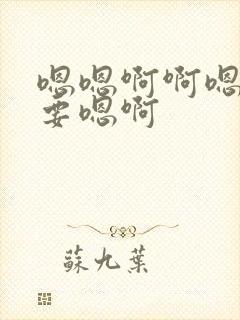 嗯嗯啊啊嗯
要嗯啊
蘇九葉